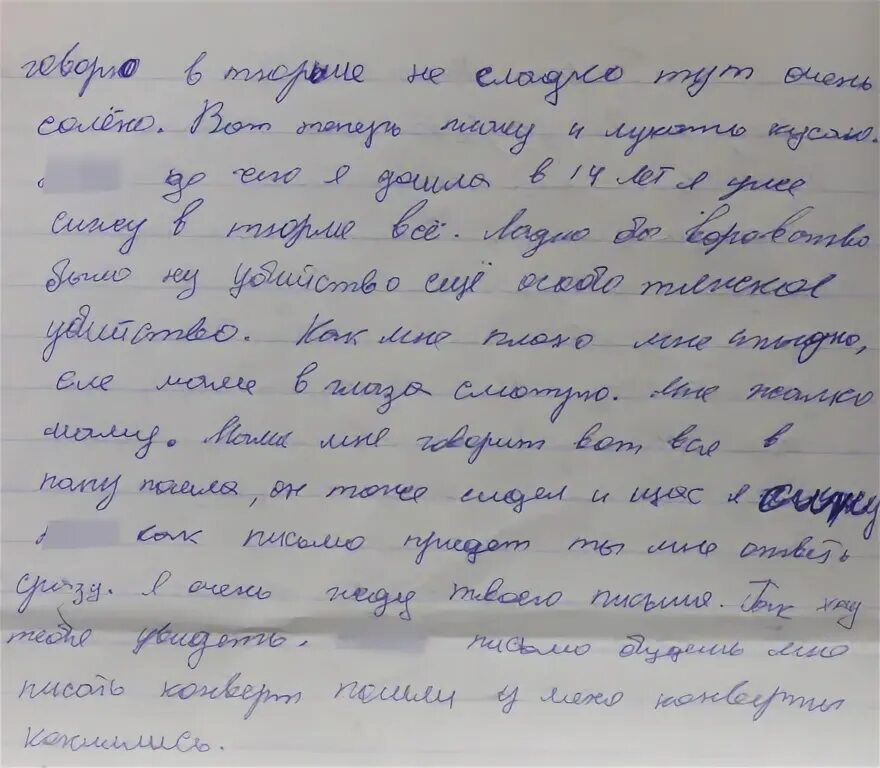 говорю в тюрьме не сладко тут очень
солёно. Вот теперь плачу и кусаю.
до чего я дошла в 14 лет я уже
сижу в тюрме всё. Ладно бы воровство
было ну убийство ещё особо тяжское
убийство. Как мне плохо мне стыдно,
еле маме в глаза смотрю. Мне жалко
маму. Мама мне говорит вот вся в
папу пошла, он тоже сидел и щас я сижу
как письмо придет ты мне ответь
сразу. Я очень жду твоего письма. Так хочу
тебя увидеть. письмо будешь мне
писать конверт пошли у меня конверты
кончились.